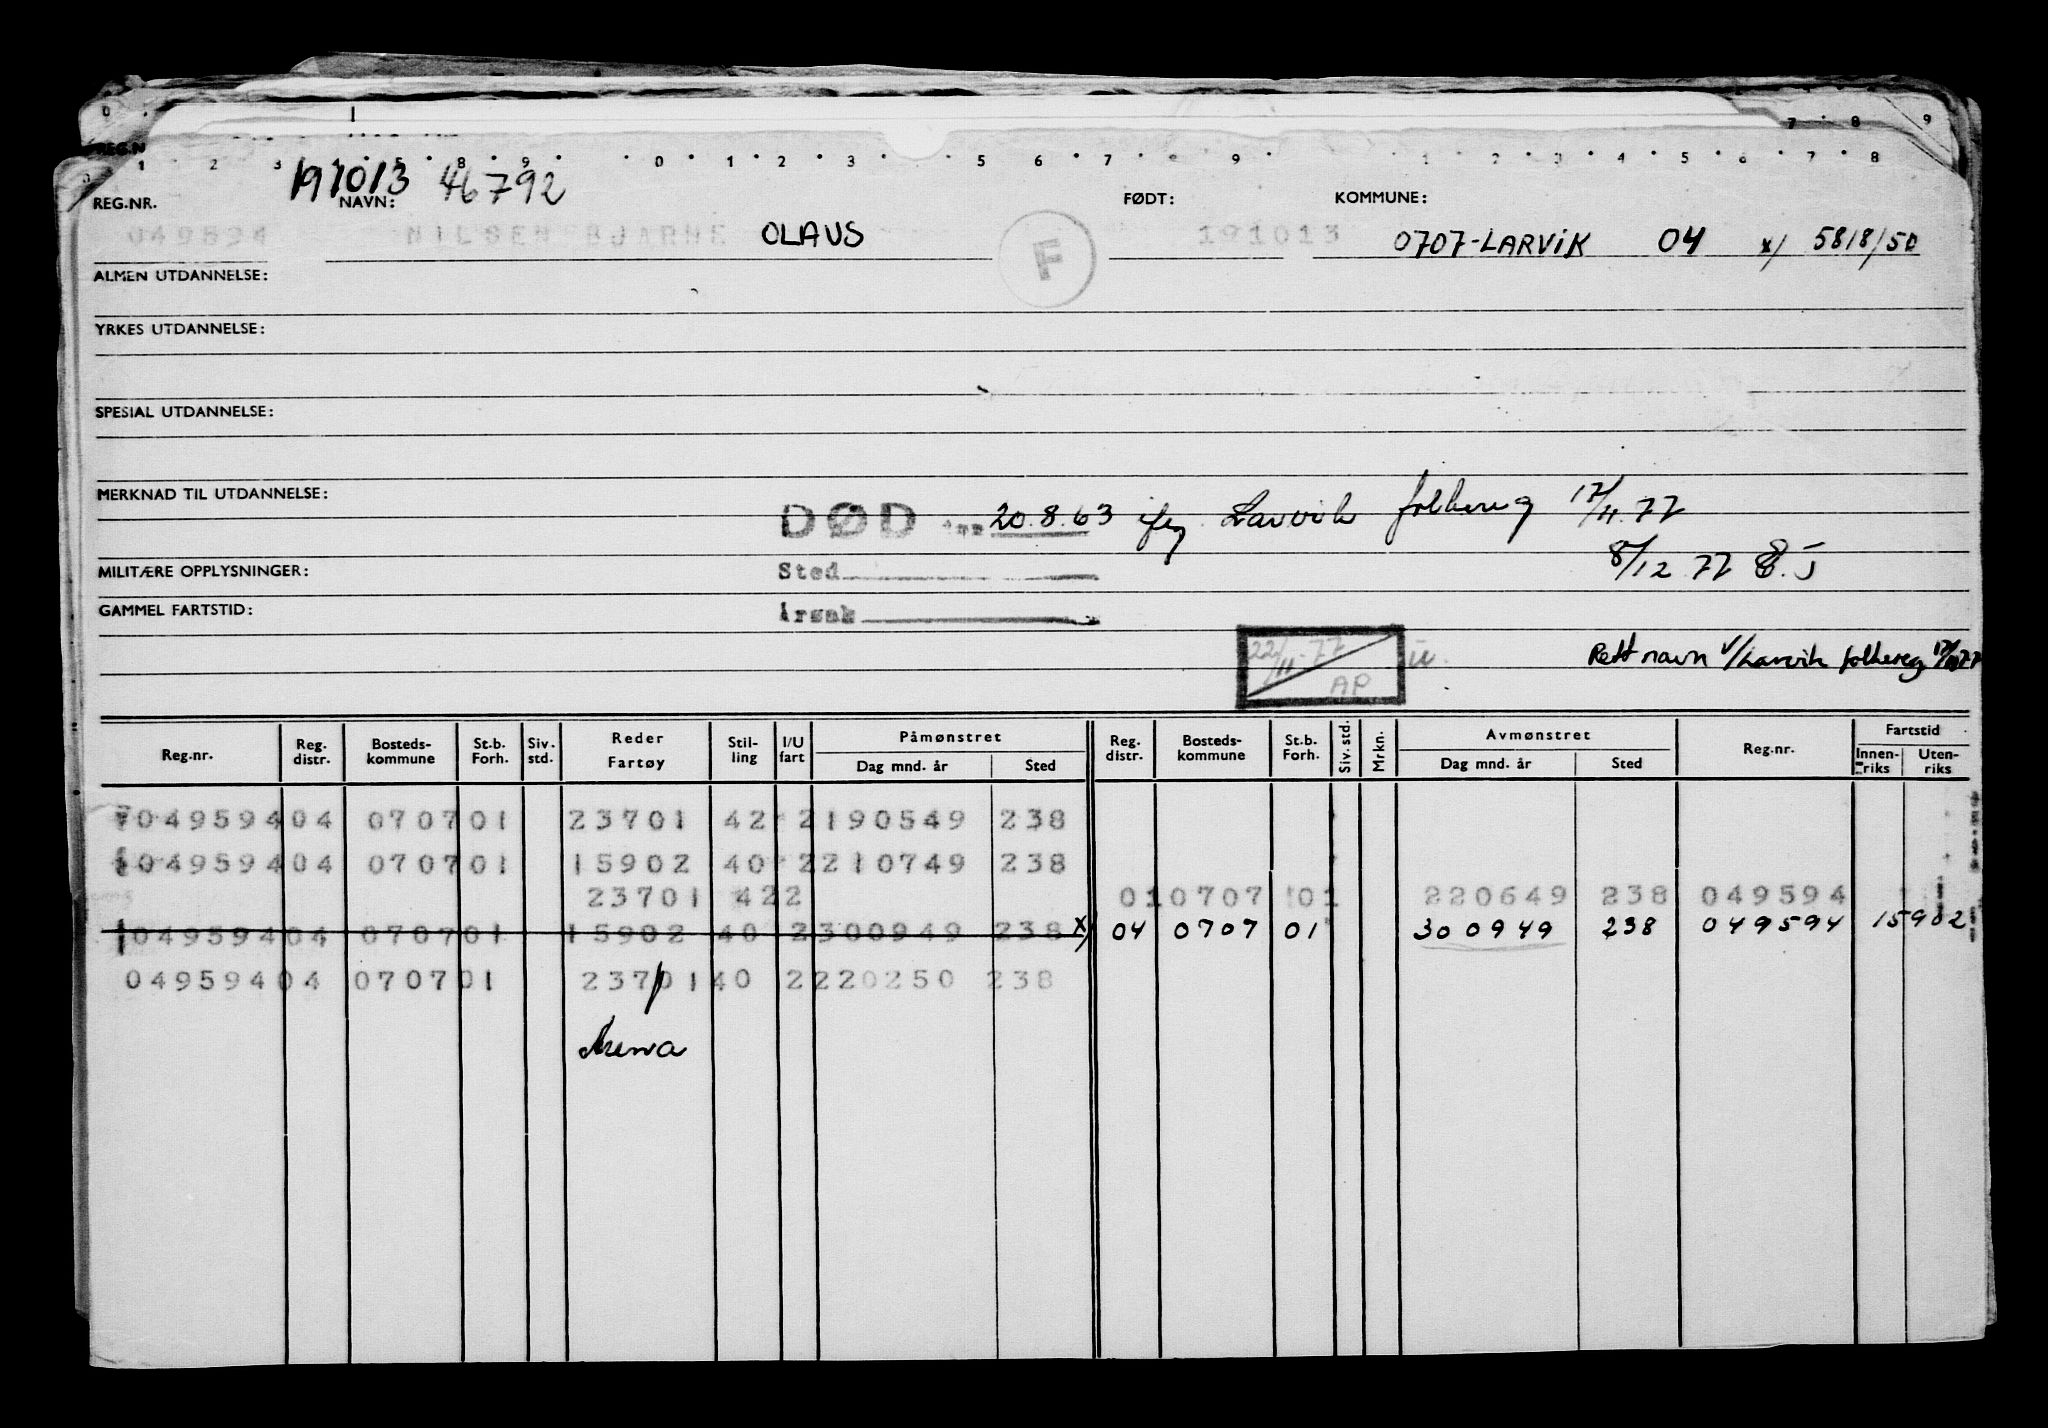 0 7 8 9
REG.N
1 2 3 4 5 8 9 0 1 2 3 5 6 7 8 9 1 2 3 4 5 6 7 8
191013 46792
REG.NR. NAVN: FØDT: KOMMUNE:
049594 NILSEN BJARNE OLAUS F 191013 0707-LARVIK 04 x/ 5818/50
ALMEN UTDANNELSE:
YRKES UTDANNELSE:
SPESIAL UTDANNELSE:
MERKNAD TIL UTDANNELSE:
DØD den 20.8.63 ifg Larvik folkereg 17/11.77
8/12 77
MILITÆRE OPPLYSNINGER: Sted
GAMMEL FARTSTID: Årsak
22/11-77 AP
Rett navn v/Larvik folkereg 17/11 77
Reg.nr. Reg. distr. Bosteds-kommune St.b. Forh. Siv. std. Reder Fartøy Stil-ling I/U fart Påmønstret Dag mnd. år Sted Reg. distr. Bosteds-kommune St.b. Forh. Siv. std. Mrkn. Avmønstret Dag mnd. år Sted Reg.nr. Fartstid Innen-riks Uten-riks
049594 04 0707 01 23701 42 2 190549 238
049594 04 0707 01 15902 40 2 210749 238
23701 42 2 01 0707 01 220649 238 049594
049594 04 0707 01 15902 40 2 300949 238 x/ 04 0707 01 300949 238 049594 15902
049594 04 0707 01 23701 40 2 220250 238